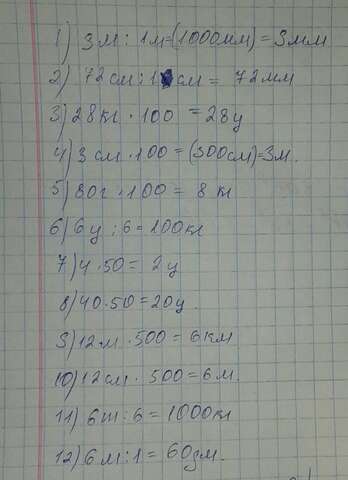 1) 3м : 1м=(1000мм) = 3мм
2) 72см : 1 см = 72мм
3) 28кг · 100 = 28ц
4) 3см · 100 = (300см)=3м.
5) 80г · 100 = 8 кг
6) 6ц : 6 = 100кг
7) 4 · 50 = 2ц
8) 40 · 50 = 20ц.
9) 12м · 500 = 6км
10) 12см · 500 = 6м.
11) 6т : 6 = 1000кг
12) 6м : 1 = 60дм.